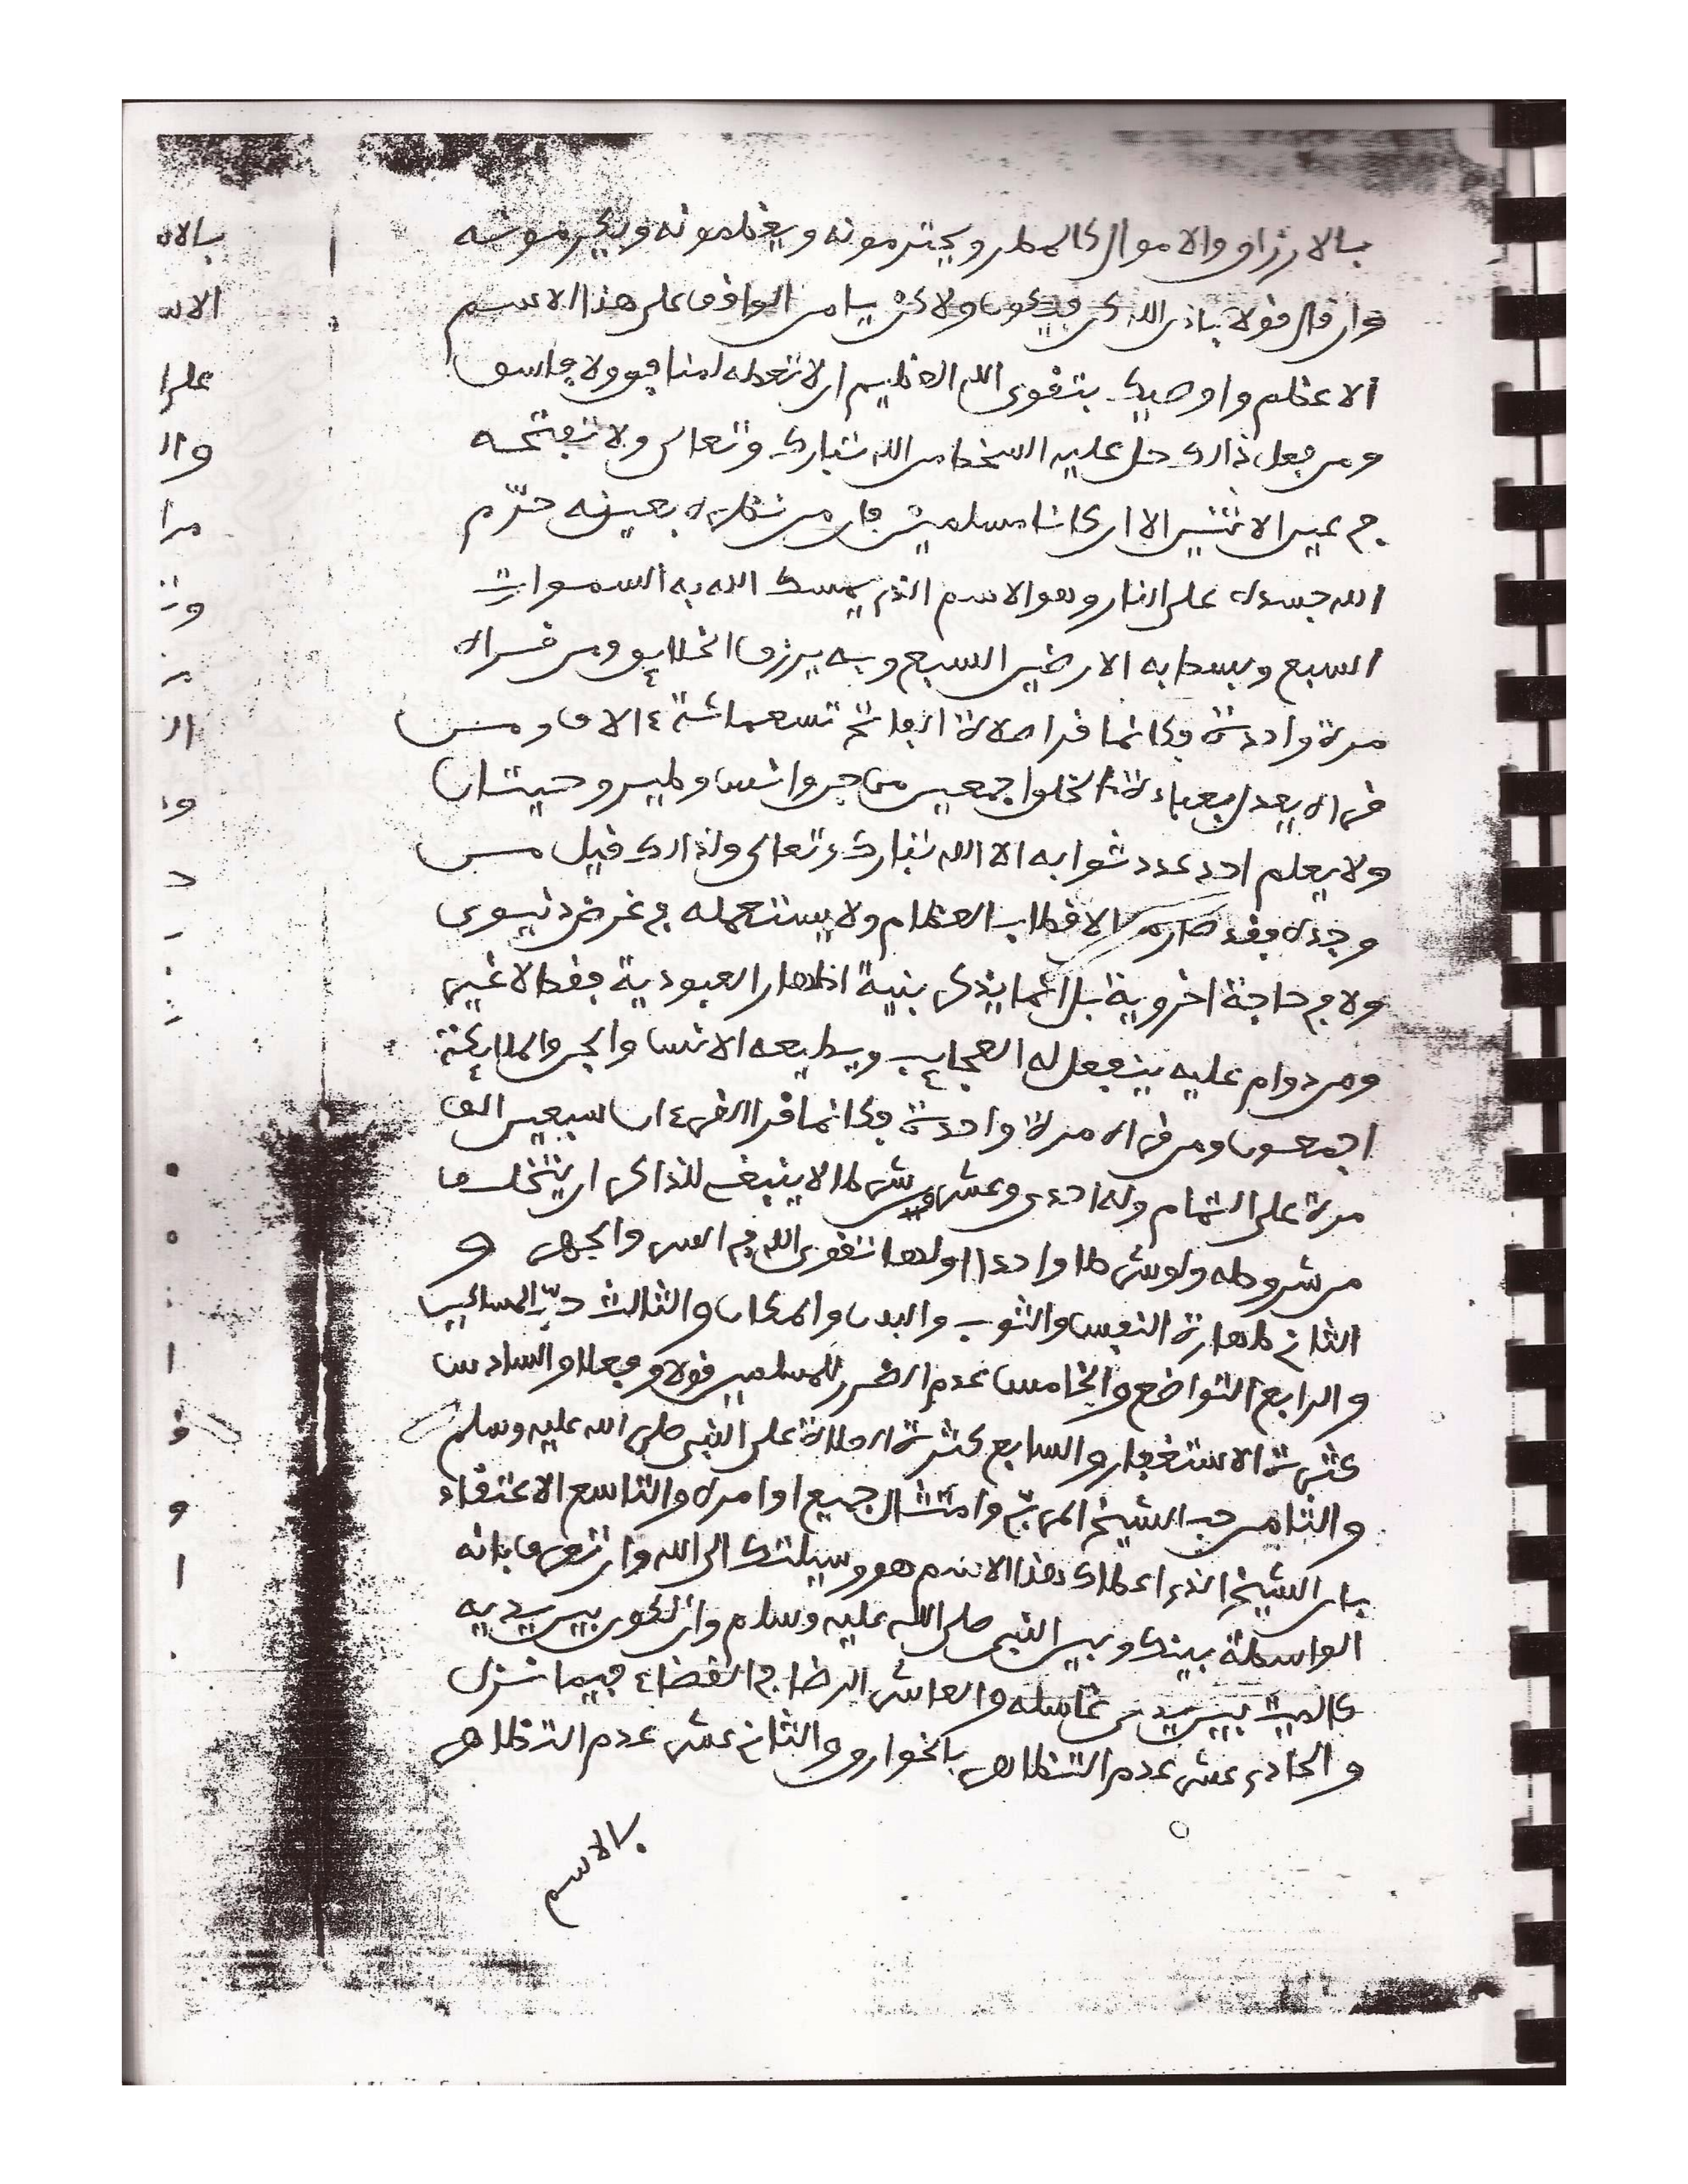 بالارزاق والاموال كالمطر ويحترمونه ويعظمونه ويكرمونه
وان قال قولا باذن الله كن فيكون ولاكن يا من الواقف على هذا الاسم
الاعظم واوصيك بتقوى الله العظيم ان لا تعطه لمنافق ولا فاسق
ومن فعل ذالك حل عليه السخط من الله تبارك وتعالى ولا تفتحه
في عين الاثنين الا ان كانا مسلمين فان من نظره بعينه حرّم
الله جسده على النار وهو الاسم الذي يمسك الله به السموات
السبع وبسط به الارضين السبع وبه يرزق الخلايق ومن قراه
مرة واحدة فكانما قرا صلاة الفاتح تسعمائة ءالاف ومن
قراه يعدل بعبادة الخلق اجمعين من جن وانس وطير وحيتان
ولا يعلم احد عدد ثوابه الا الله تبارك وتعالى ولذالك قيل من
وجده فقد صار من الاقطاب العظام ولا يستعمله في غرض دنيوى
ولا في حاجة اخروية بل انما يذكر بنية اظهار العبودية فقط لا غير
ومن دوام عليه ينفعل له العجايب ويطيعه الانس والجن والملايكة
اجمعون ومن قراه مرة واحدة فكانما قرا القرءان سبعين الف
مرة على التمام وله احدى وعشرون شرطا لا ينبغي للذاكر ان يتخلف
من شروطه ولو شرطا واحدا اولها تقوى الله في السر والجهر و
الثاني طهارة النفس والثوب والبدن والمكان والثالث حبّ المساكين
والرابع التواضع والخامس عدم الضرر للمسلمين قولا وفعلا والسادس
كثرة الاستغفار والسابع كثرة الصلاة على النبي صلى الله عليه وسلم
والثامن حب الشيخ المربي وامتثال جميع اوامره والتاسع الاعتقاد
بان الشيخ الذي اعطاك هذا الاسم هو وسيلتك الى الله وان تعرف بانه
الواسطة بينك وبين النبي صلى الله عليه وسلم وان تكون بين يديه
كالميت بين يدي غاسله والعاشر الرضا في القضاء فيما نزل
والحادي عشر عدم التظاهر بالخوارق والثاني عشر عدم التظاهر
بالاسم